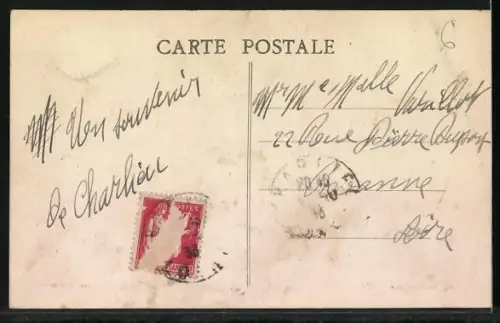 CARTE POSTALE
Un souvenir
De Charlieu
Mr Me Melle
22 Rue Pierre Dupont
Roanne
Loire
POSTES
6